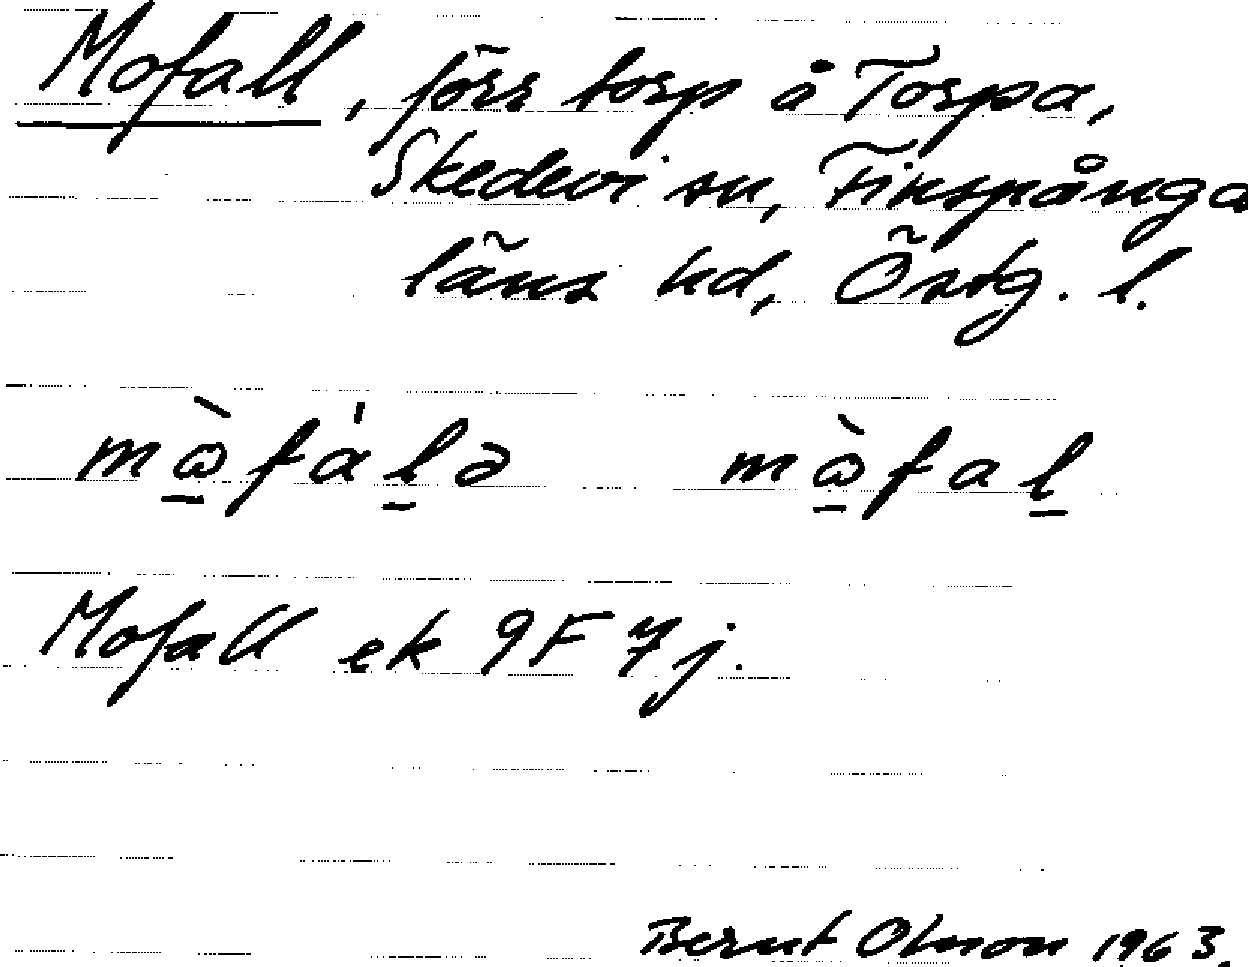 Mofall, förr torp å Torpa,
Skedevi sn, Finspånga
läns hd, Östg. l.
mὼfàl̲ə mὼfal̲
Mofall ek 9F 7j.
Bernt Olsson 1963.